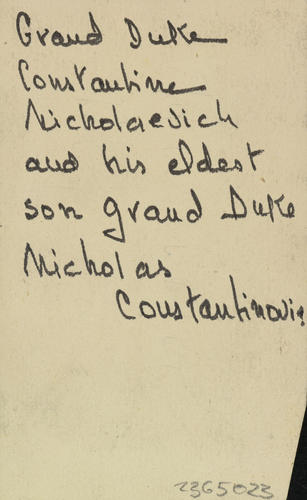 Grand Duke
Constantine
Nicholaevich
and his eldest
son grand Duke
Nicholas
Constantinovic
2365023